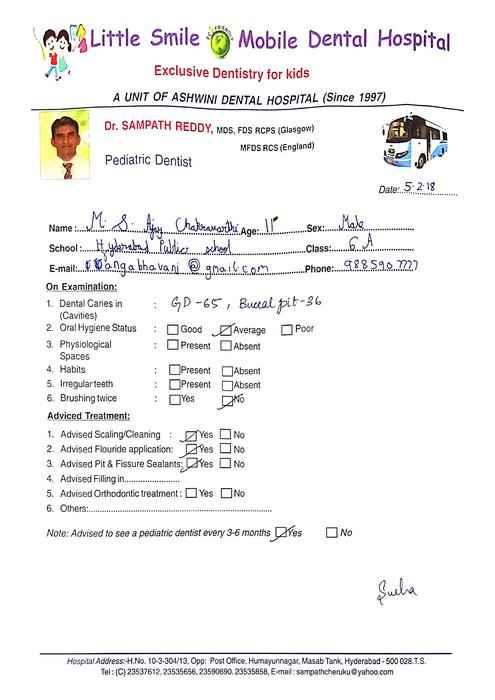 Little Smile Mobile Dental Hospital
Exclusive Dentistry for kids
A UNIT OF ASHWINI DENTAL HOSPITAL (Since 1997)
Dr. SAMPATH REDDY, MDS, FDS RCPS (Glasgow)
MFDS RCS (England)
Pediatric Dentist
Date: 5.2.18
Name: M. S. Ajay Chakravarthi Age: 11 Sex: Male
School: Hyderabad Public school Class: 6 A
E-mail: gangabhavani @ gmail.com Phone: 9885907777
On Examination:
1. Dental Caries in : GD-65, Buccal pit-36
(Cavities)
2. Oral Hygiene Status : Good Average Poor
3. Physiological : Present Absent
Spaces
4. Habits : Present Absent
5. Irregular teeth : Present Absent
6. Brushing twice : Yes No
Adviced Treatment:
1. Advised Scaling/Cleaning : Yes No
2. Advised Flouride application: Yes No
3. Advised Pit & Fissure Sealants: Yes No
4. Advised Filling in........................
5. Advised Orthodontic treatment : Yes No
6. Others:..............................................................
Note: Advised to see a pediatric dentist every 3-6 months Yes No
Hospital Address:-H.No. 10-3-304/13, Opp: Post Office, Humayunnagar, Masab Tank, Hyderabad - 500 028.T.S.
Tel : (C) 23537612, 23535656, 23590690, 23535858, E-mail : sampathcheruku@yahoo.com